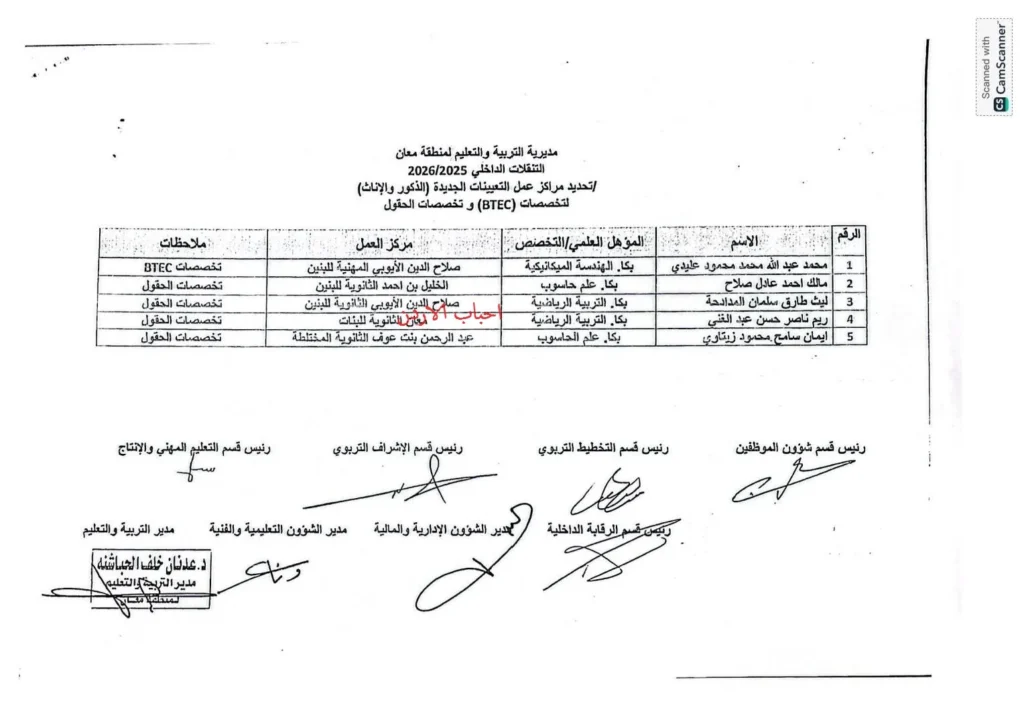 Scanned with
CS CamScanner
مديرية التربية والتعليم لمنطقة معان
التنقلات الداخلي 2026/2025
/تحديد مراكز عمل التعيينات الجديدة (الذكور والإناث)
لتخصصات (BTEC) و تخصصات الحقول
الرقم الاسم المؤهل العلمي/التخصص مركز العمل ملاحظات
1 محمد عبد الله محمد محمود عليدي بكا. الهندسة الميكانيكية صلاح الدين الأيوبي المهنية للبنين تخصصات BTEC
2 مالك احمد عادل صلاح بكا. علم حاسوب الخليل بن احمد الثانوية للبنين تخصصات الحقول
3 ليث طارق سلمان المدادحة بكا. التربية الرياضية صلاح الدين الأيوبي الثانوية للبنين تخصصات الحقول
احباب الأردن
4 ريم ناصر حسن عبد الغني بكا. التربية الرياضية معان الثانوية للبنات تخصصات الحقول
5 ايمان سامح محمود زيتاوي بكا. علم الحاسوب عبد الرحمن بنت عوف الثانوية المختلطة تخصصات الحقول
رئيس قسم شؤون الموظفين رئيس قسم التخطيط التربوي رئيس قسم الإشراف التربوي رئيس قسم التعليم المهني والإنتاج
رئيس قسم الرقابة الداخلية مدير الشؤون الإدارية والمالية مدير الشؤون التعليمية والفنية مدير التربية والتعليم
د. عدنان خلف الحباشنه
مدير التربية والتعليم
لمنطقة معان